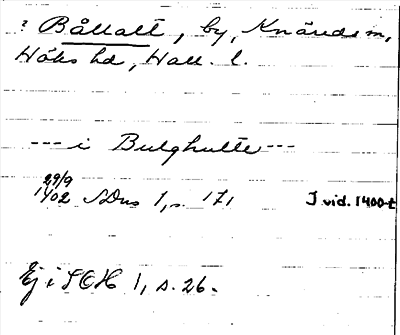 ? Bållalt, by, Knäreds sn,
Höks hd, Hall. l.
--- i Bulghulte ---
29/9
1402 SDns 1, s. 171 I vid. 1400-t
Ej i SOH 1, s. 26.